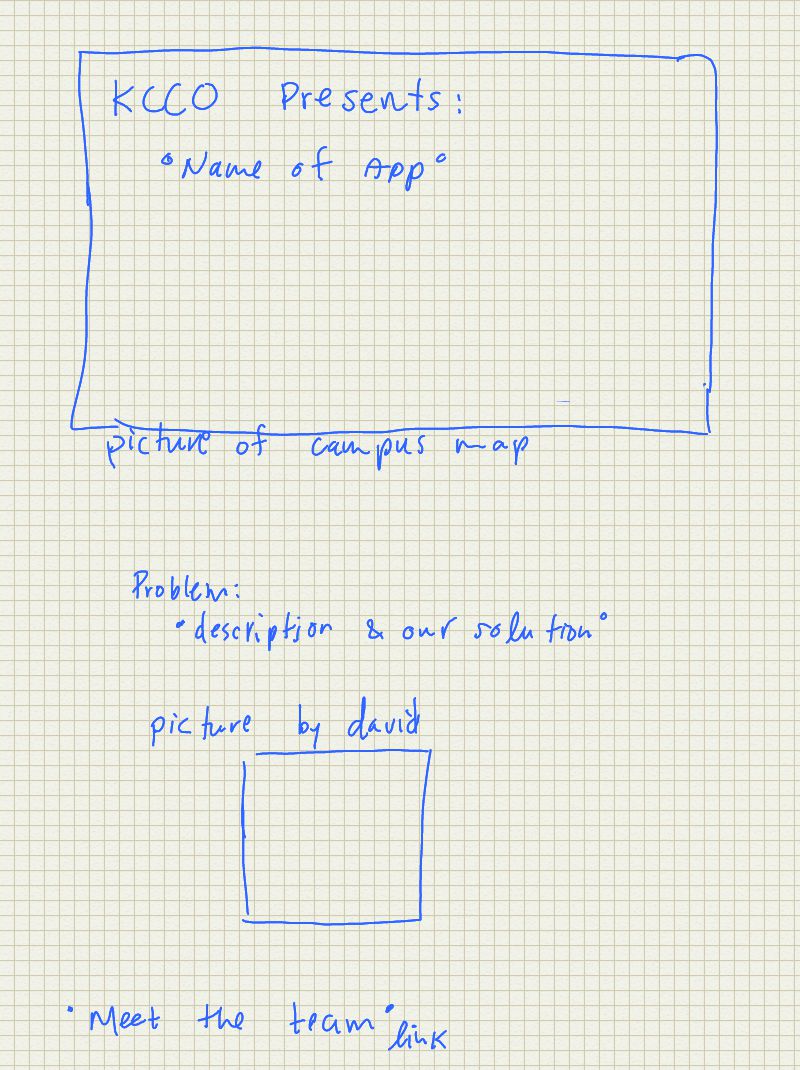 KCCO Presents:
°Name of App°
picture of campus map
Problem:
°description & our solution°
picture by david
°Meet the team° link